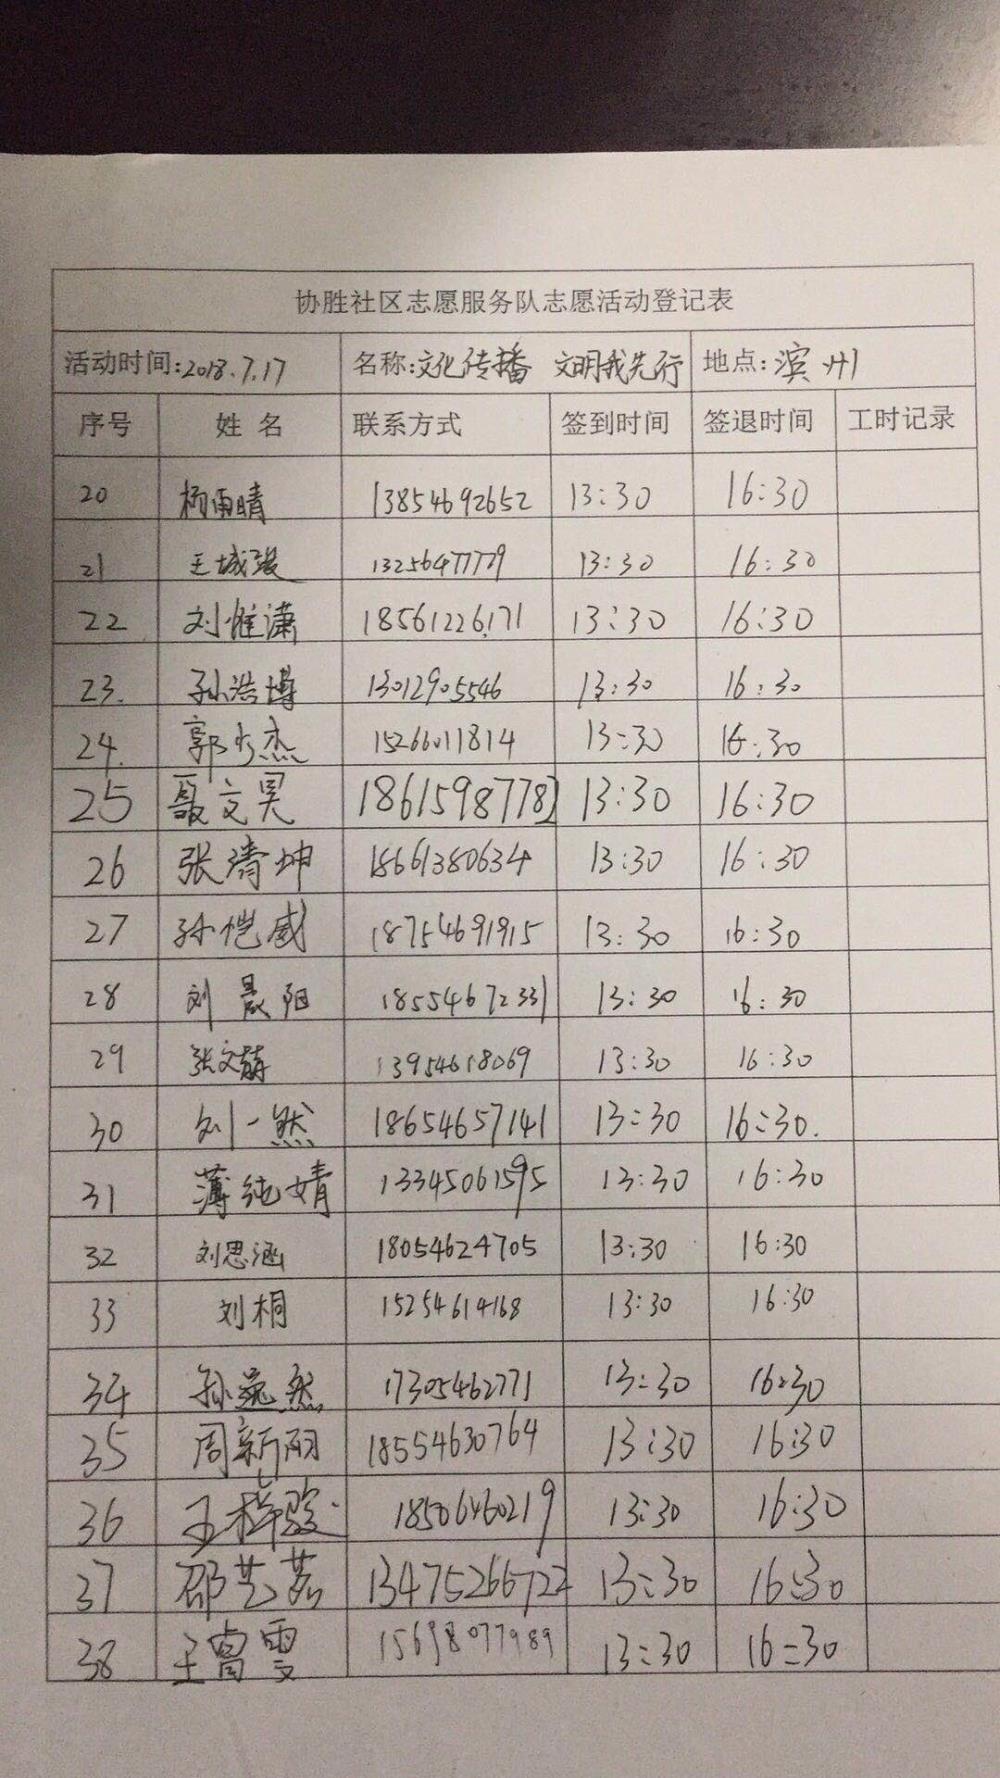 协胜社区志愿服务队志愿活动登记表
活动时间:2018.7.17 名称:文化传播 文明我先行 地点:滨州
序号 姓名 联系方式 签到时间 签退时间 工时记录
20 杨雨晴 13854692652 13:30 16:30
21 王城 13256477779 13:30 16:30
22 刘惟潇 18561226171 13:30 16:30
23. 孙浩博 13012905546 13:30 16:30
24. 郭少杰 15266011814 13:30 16:30
25 聂文昊 18615987782 13:30 16:30
26 张清坤 18661380634 13:30 16:30
27 孙恺威 18754691915 13:30 16:30
28 刘晨阳 18554672331 13:30 16:30
29 张文萌 13954618069 13:30 16:30
30 刘一然 18654657141 13:30 16:30.
31 薄纯婧 13345061595 13:30 16:30
32 刘思涵 18054624705 13:30 16:30
33 刘桐 15254614168 13:30 16:30
34 孙逸然 17305462771 13:30 16:30
35 周新羽 18554630764 13:30 16:30
36 王梓骏 18506460219 13:30 16:30
37 邵艺茗 13475266722 13:30 16:30
38 王雪 15698077989 13:30 16:30